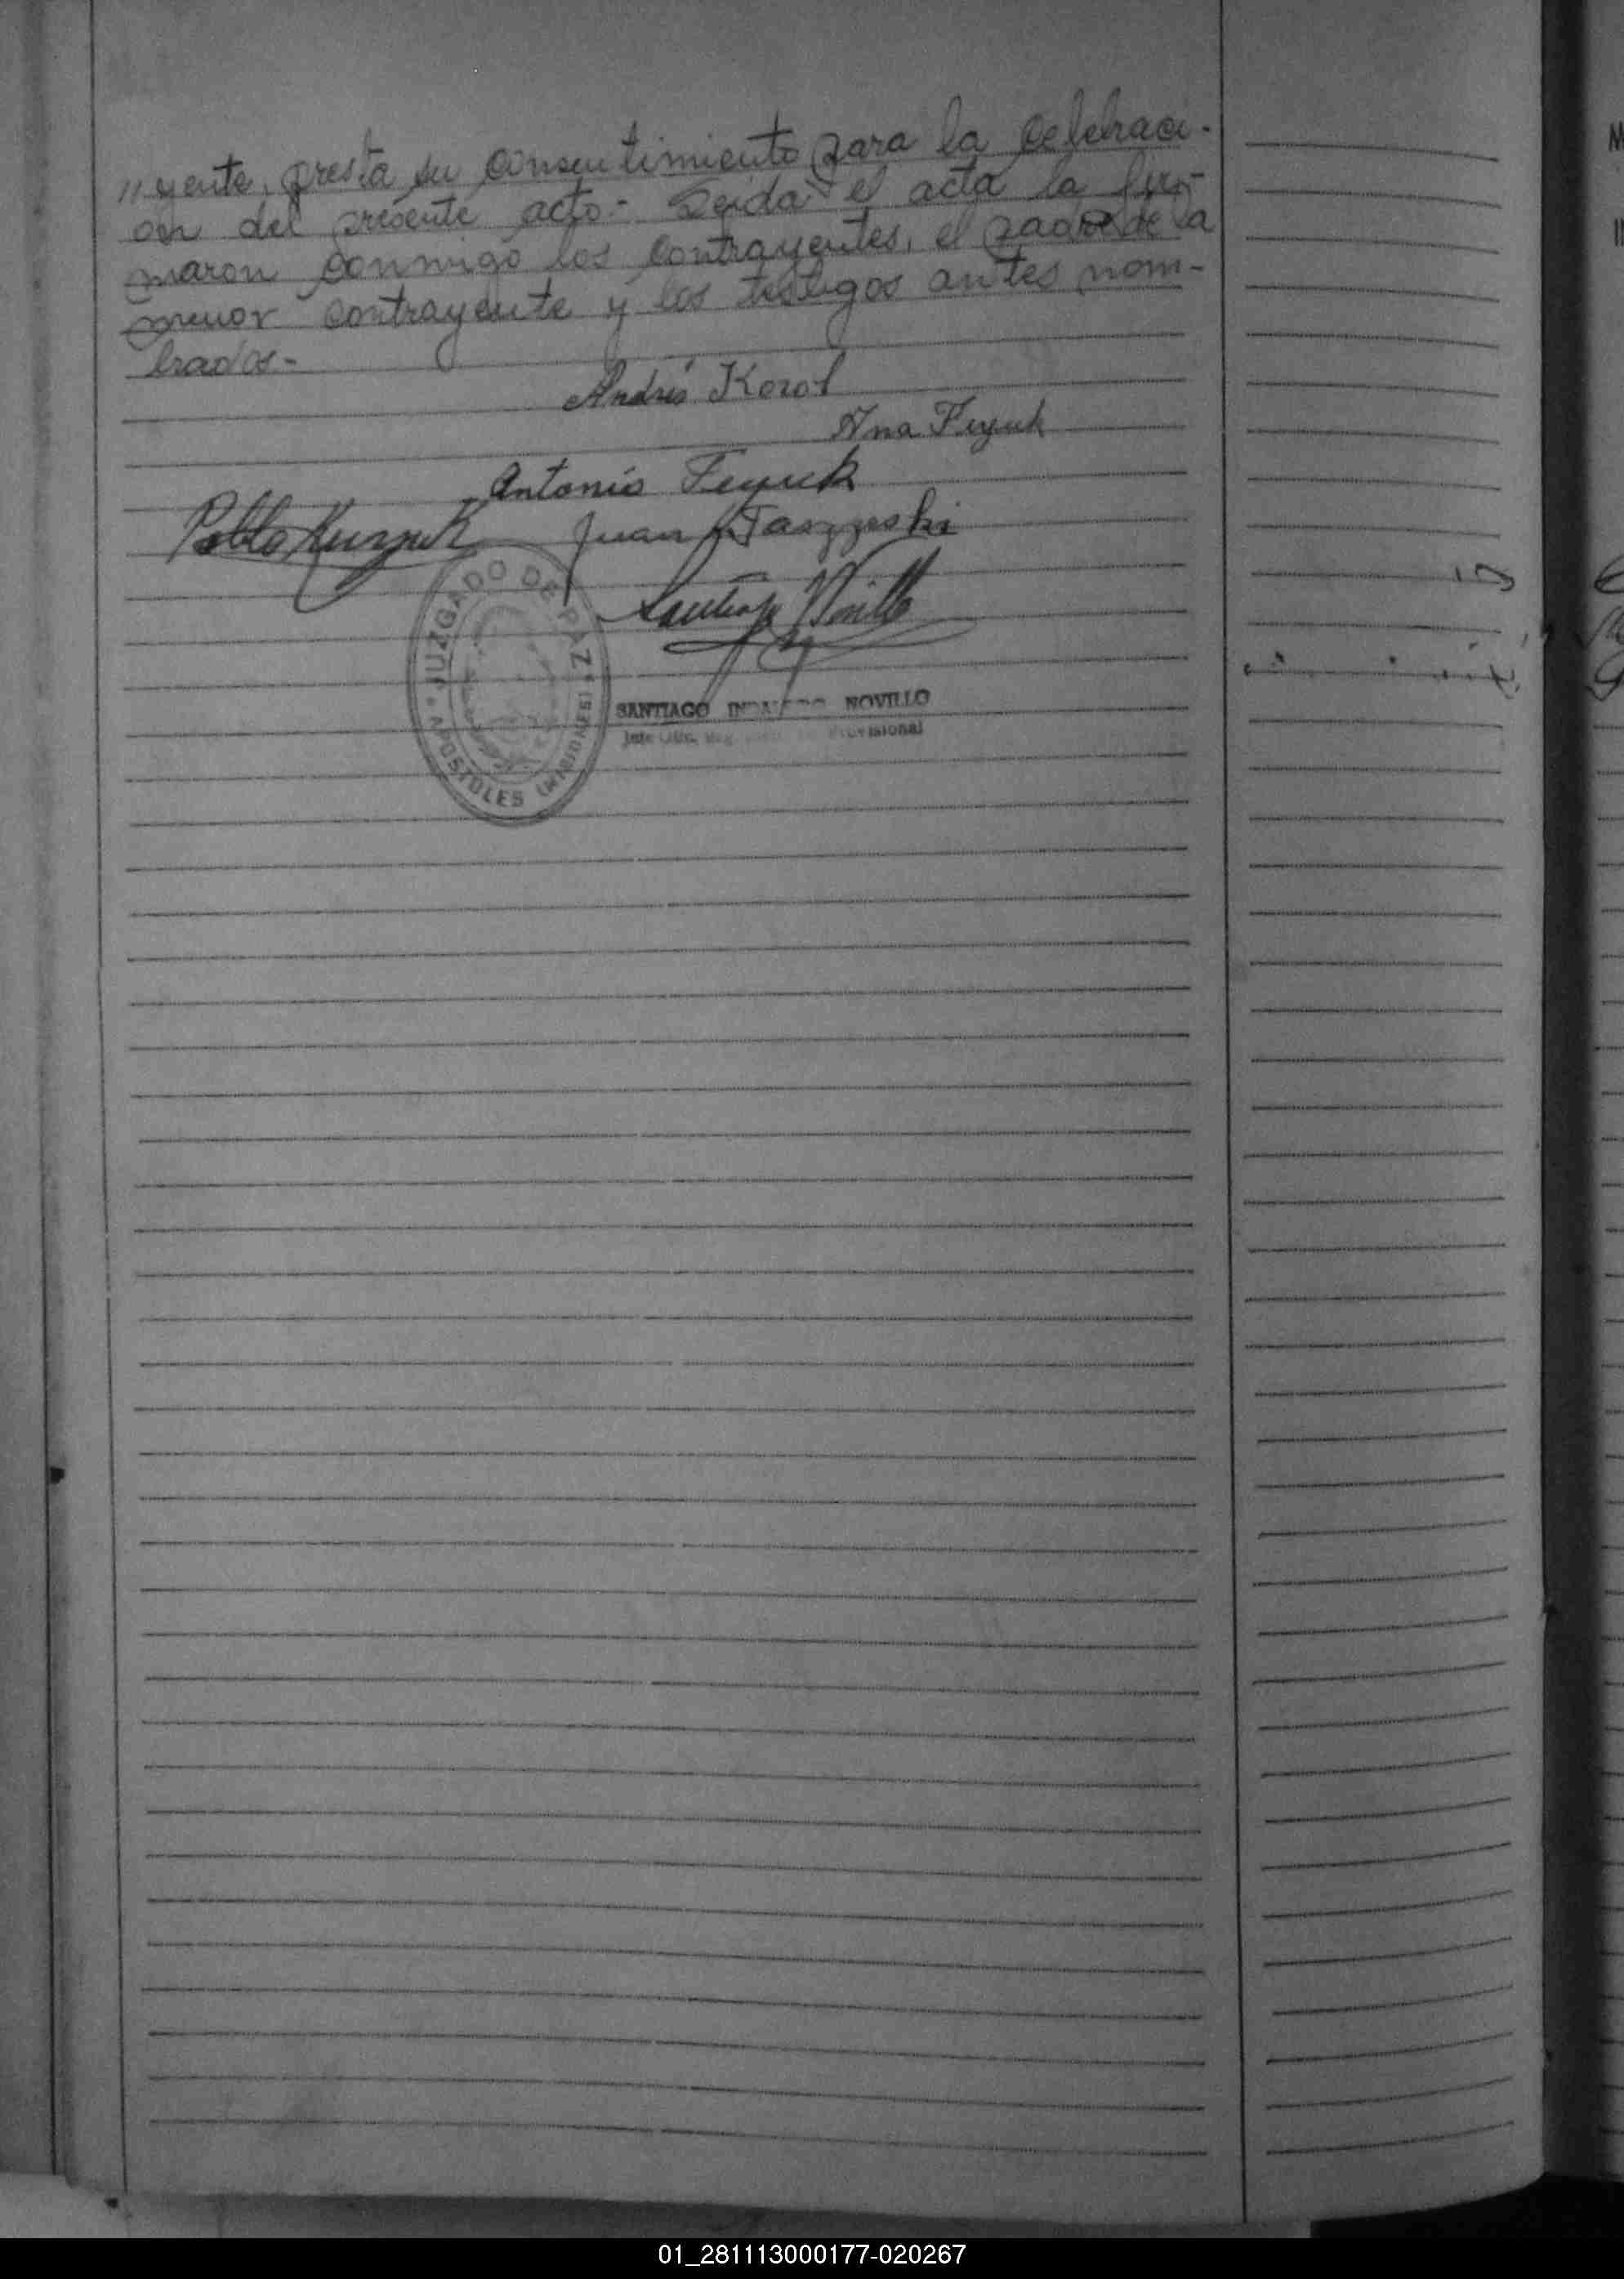 "yente, presta su consentimiento para la celebraci-
on del presente acto.- Leida el acta la fir-
maron conmigo los contrayentes, el padre de la
menor contrayente y los testigos antes nom-
brados-
Andrés Korol
Ana Feyuk
Antonio Feyuk
Pablo Juan
Santiago
JUZGADO DE PAZ
APOSTOLES (MISIONES)
SANTIAGO NOVILLO
Provisional
01_281113000177-020267